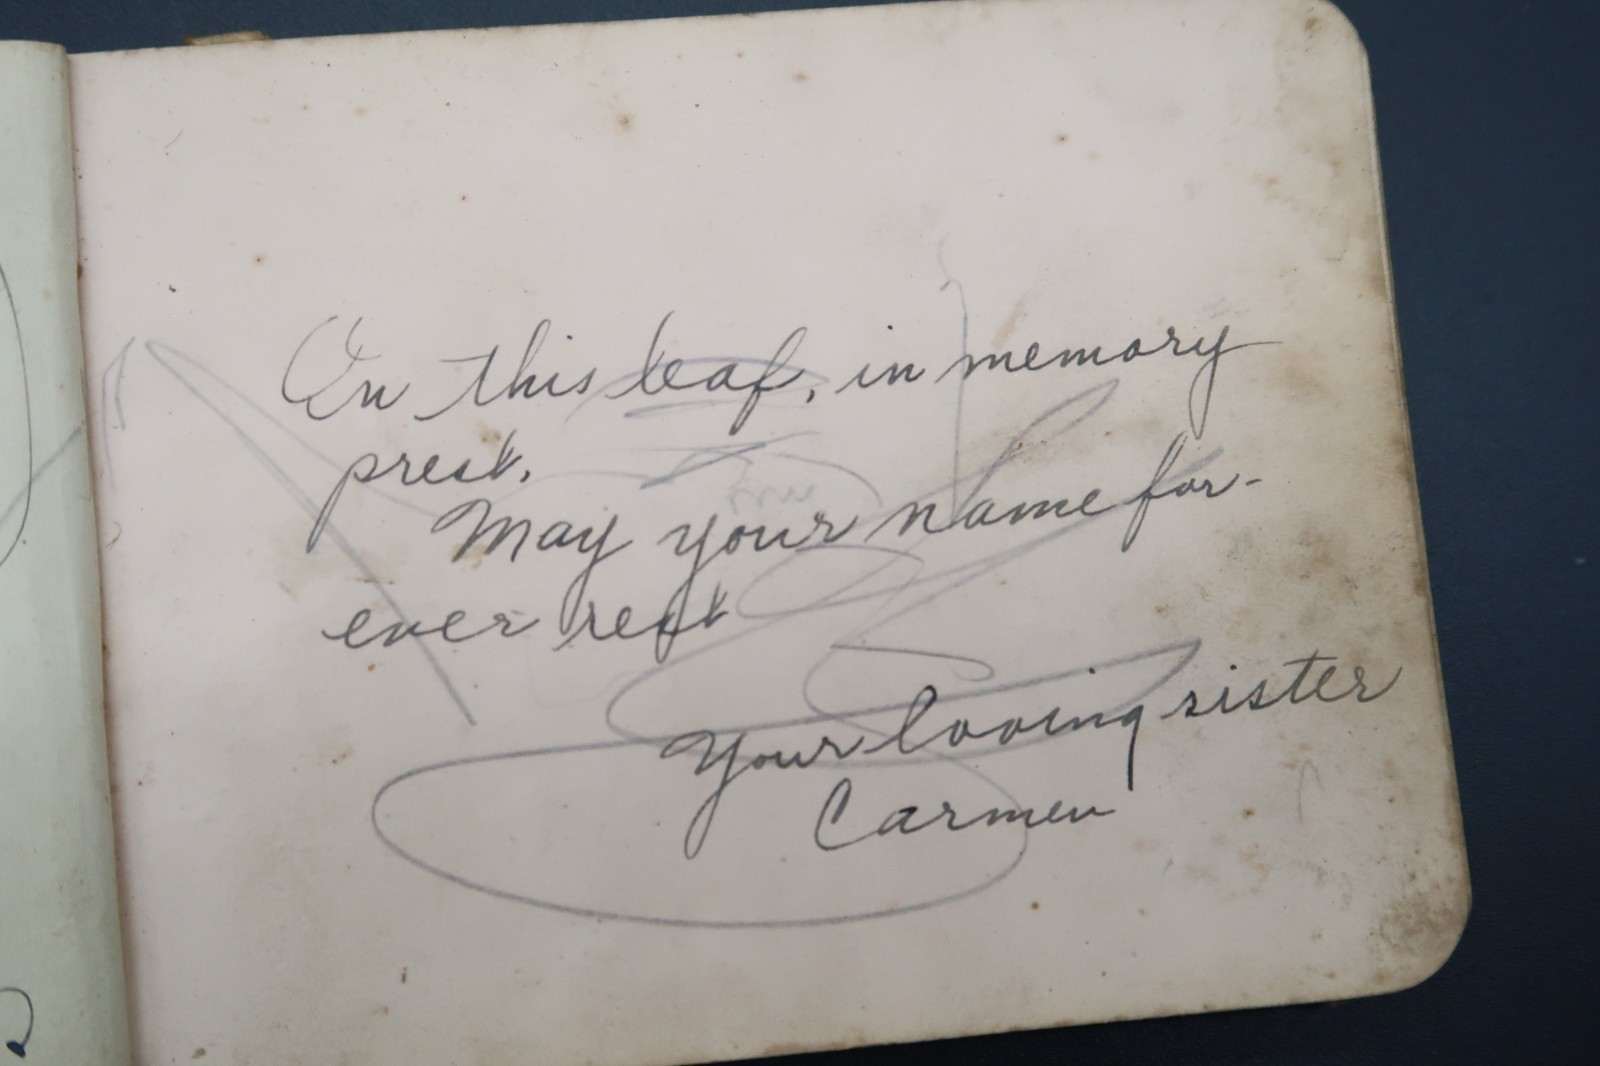 On this leaf, in memory
prest.
May your name for-
ever rest
Your loving sister
Carmen